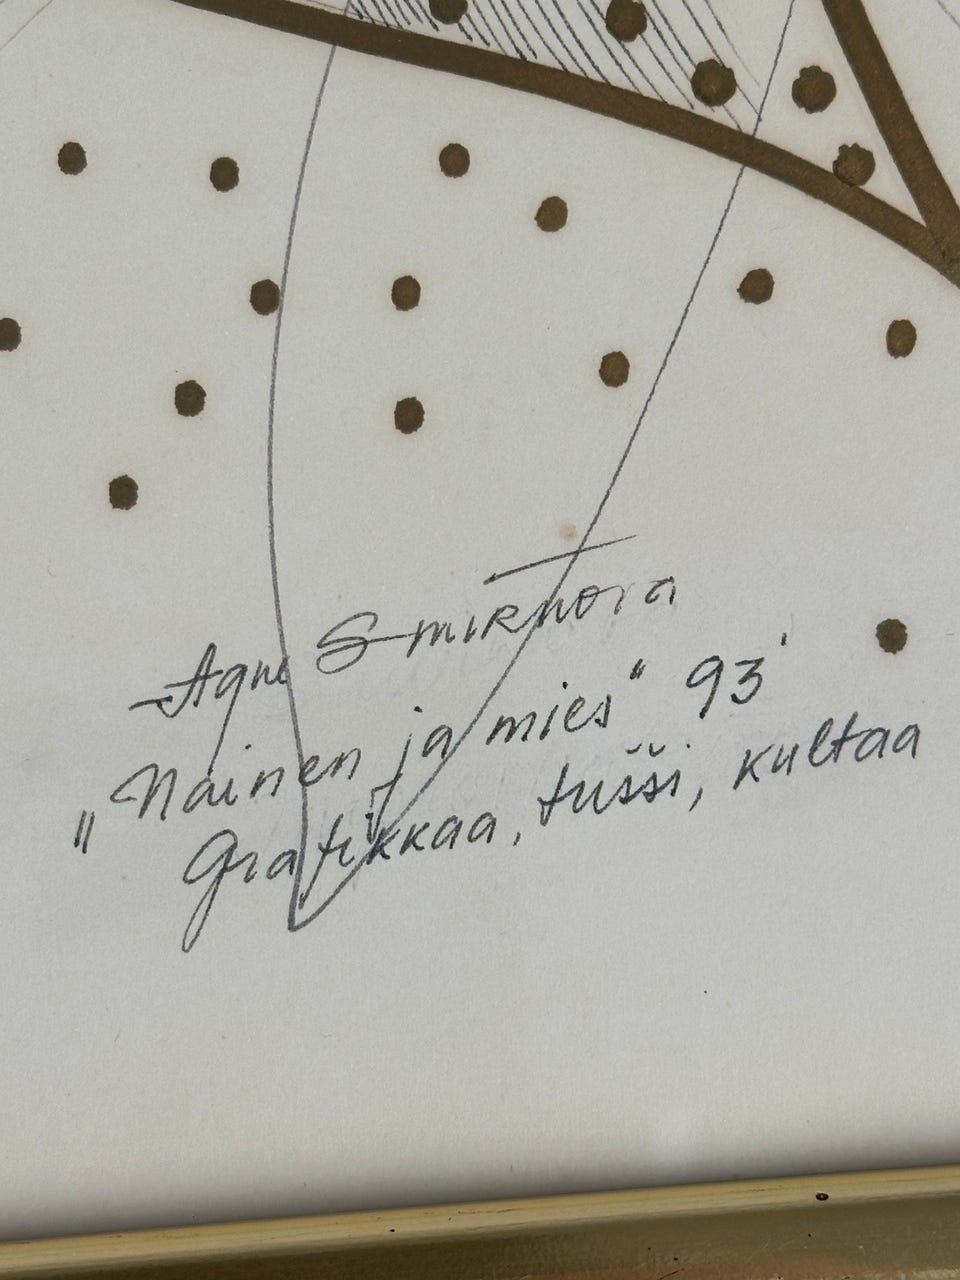 Agne Smirnova
„Nainen ja mies“ 93'
Grafikkaa, tušši, kultaa